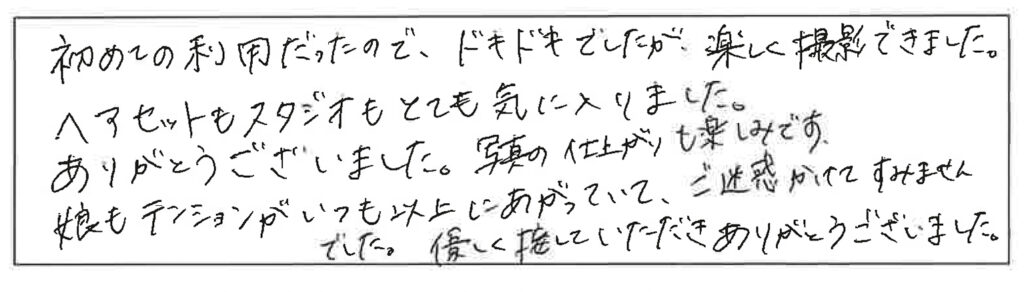 初めての利用だったので、ドキドキでしたが、楽しく撮影できました。
ヘアセットもスタジオもとても気に入りました。
ありがとうございました。写真の仕上がりも楽しみです。
娘もテンションがいつも以上にあがっていて、ご迷惑かけてすみません
でした。優しく接していただきありがとうございました。